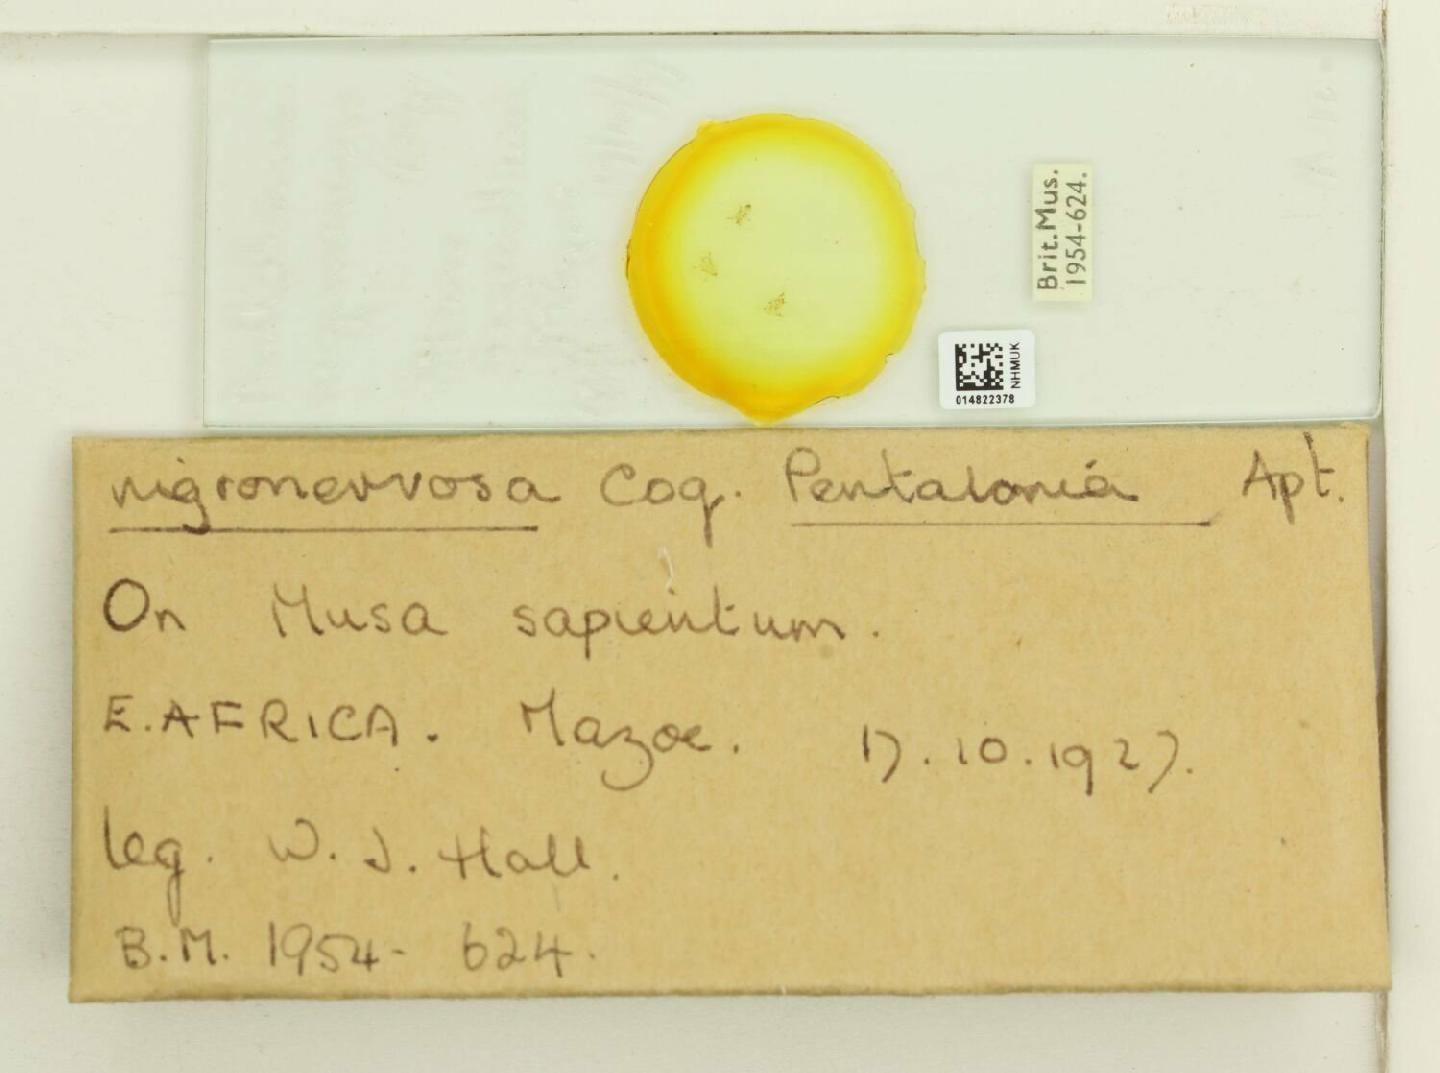 Brit.Mus.
1954-624.
NHMUK
014822378
nigronervosa Coq. Pentalonia Apt.
On Musa sapientum.
E.AFRICA. Mazoe. 17.10.1927.
leg. W.J. Hall.
B.M. 1954- 624.